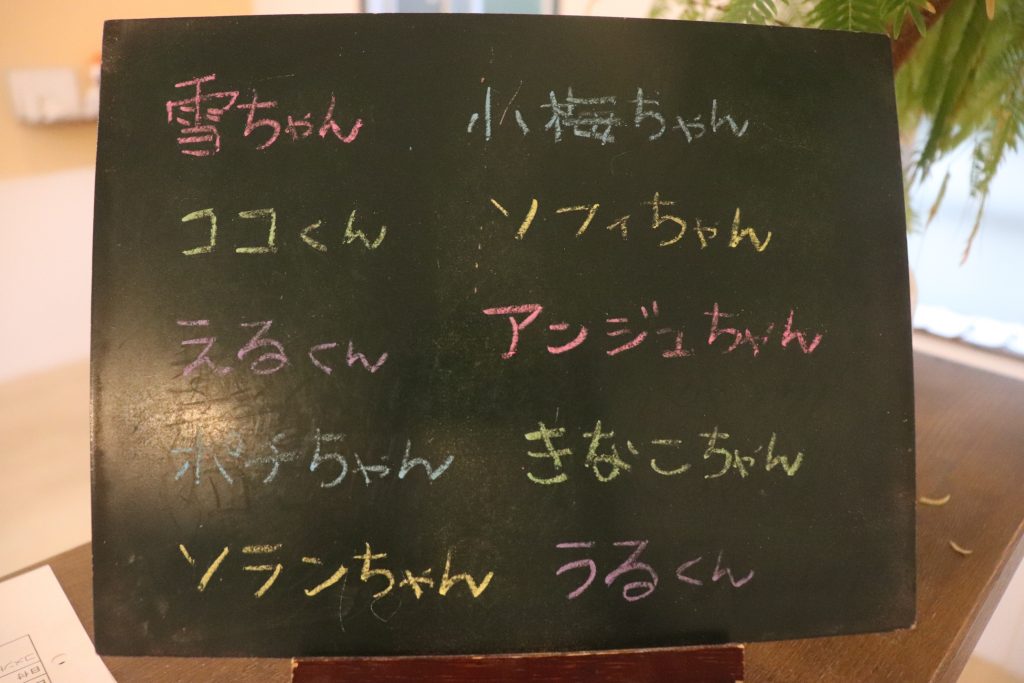 雪ちゃん 小梅ちゃん
ココくん ソフィちゃん
えるくん アンジュちゃん
ポチちゃん きなこちゃん
ソランちゃん うるくん
コメント
日付